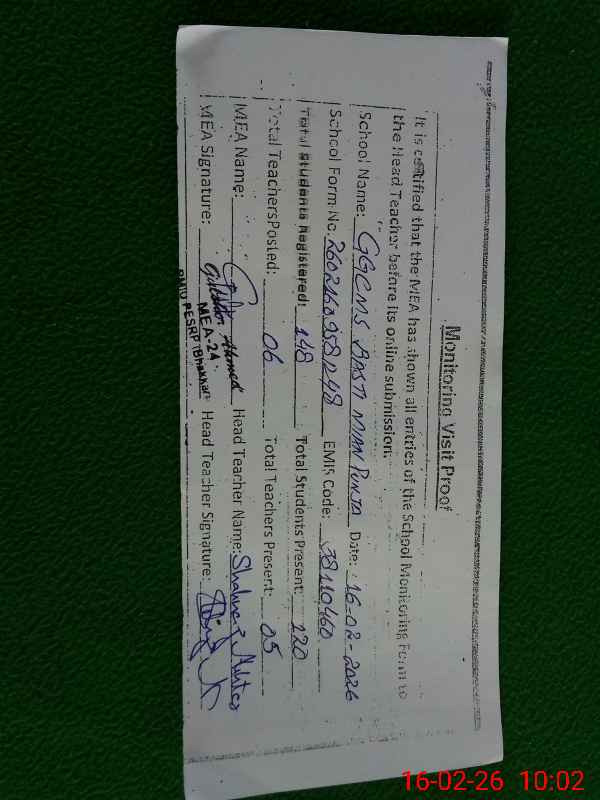 Monitoring Visit Proof
It is certified that the MEA has shown all entries of the School Monitoring Form to
the Head Teacher before its online submission.
School Name: GGCMS BASTI MIAN PUNJA Date: 16-02-2026
School Form No. 2602160958248 EMIS Code: 38110460
Total Students Registered: 148 Total Students Present: 120
Total Teachers Posted: 06 Total Teachers Present: 05
MEA Name: Head Teacher Name: Shahnaz Akhter
MEA Signature: Ahmed Head Teacher Signature:
MEA-24
PMIU PESRP (Bhakkar
16-02-26 10:02